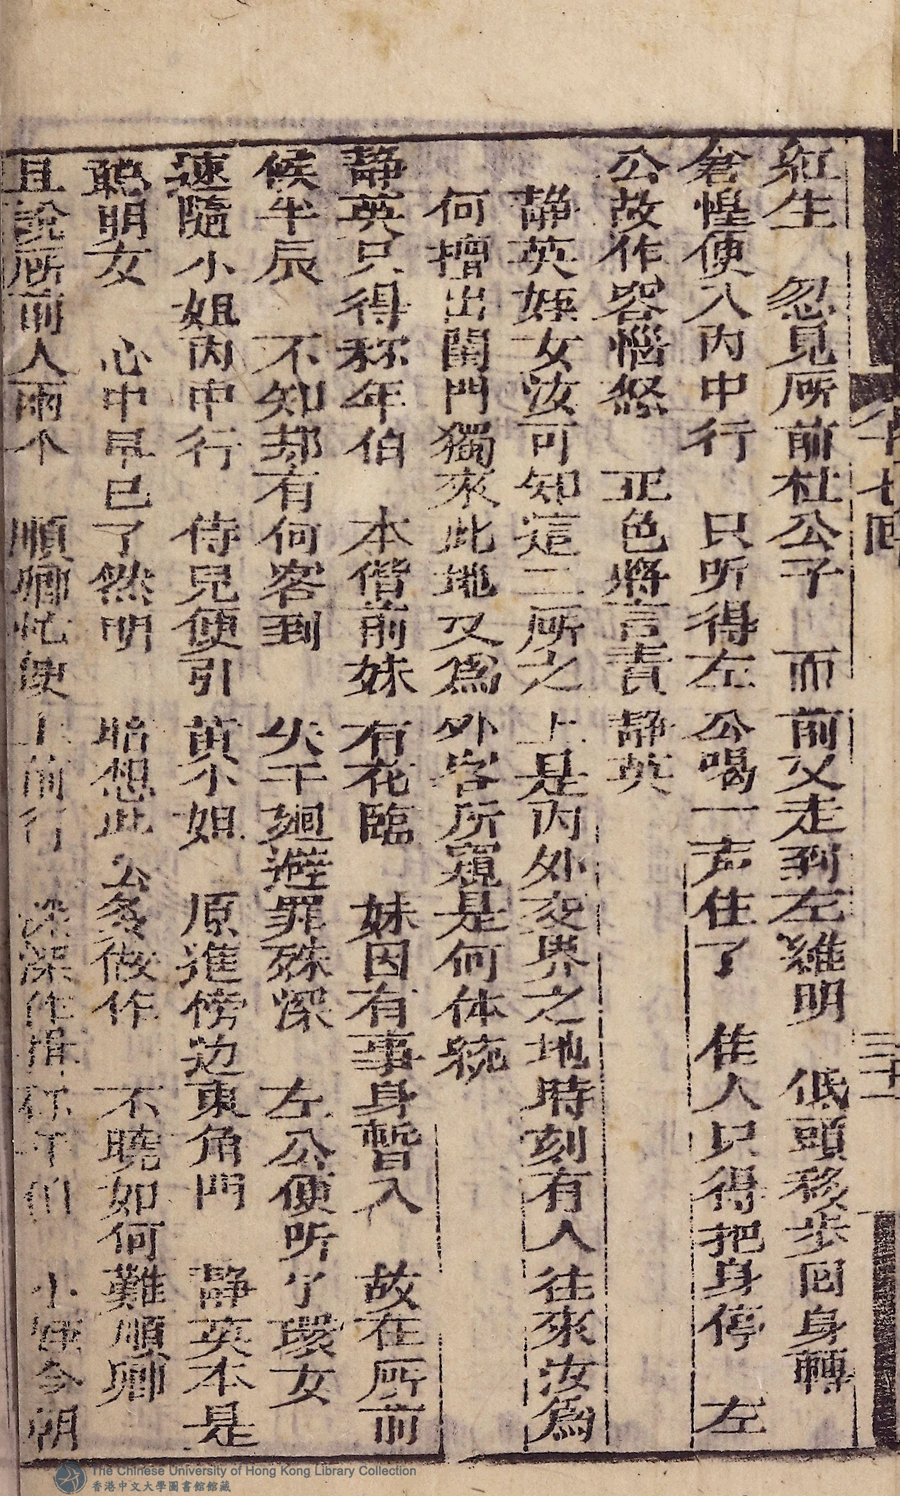 紅生　忽見𠩄前杜公子　而前又走到左維明　低頭移步囘身轉
倉惶便入内中行　只听得左公喝一声住了　佳人只得把身停　左
公故作容惱怒　正色將言責靜英
靜英姪女汝可知這二𠩄之上是内外交界之地時刻有人往來汝為
何擅出閨門獨來此地又為外客所窺是何体統
靜英只得称年伯　本偕前妹有花臨　妹因有事身暫入　故在𠩄前
候半辰　不知却有何客到　失于廻避罪殊深　左公便听了環女
速隨小姐内中行　侍兒便引黄小姐　原進傍边東角門　靜英本是
聰明女　心中早已了然明　暗想此公多做作　不曉如何難順卿
且說𠩄前人兩个　順卿忙使上前行　深深作揖称年伯　小姪今朝
十七回
三十一
The Chinese University of Hong Kong Library Collection
香港中文大學圖書館館藏